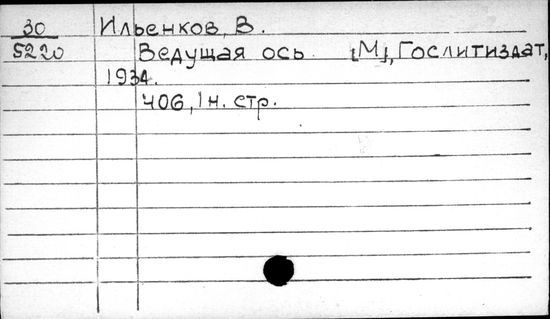 30 Ильенков, В.
5220 Ведущая ось [М], Гослитиздат,
1934.
406, 1 н. стр.